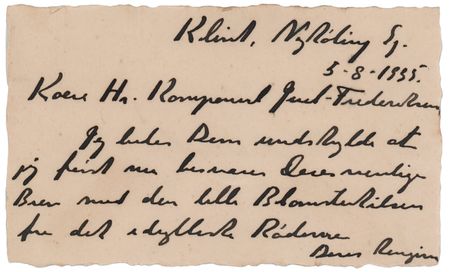 Klint, Nykøbing Sj.
5-8-1935.
Kære Hr. Komponist Juel-Frederiksen
Jeg bedes Dem undskylde at
jeg først nu besvarer Deres venlige
Brev med den lille Blomsterhilsen
fra det idylliske Rødovre
Deres